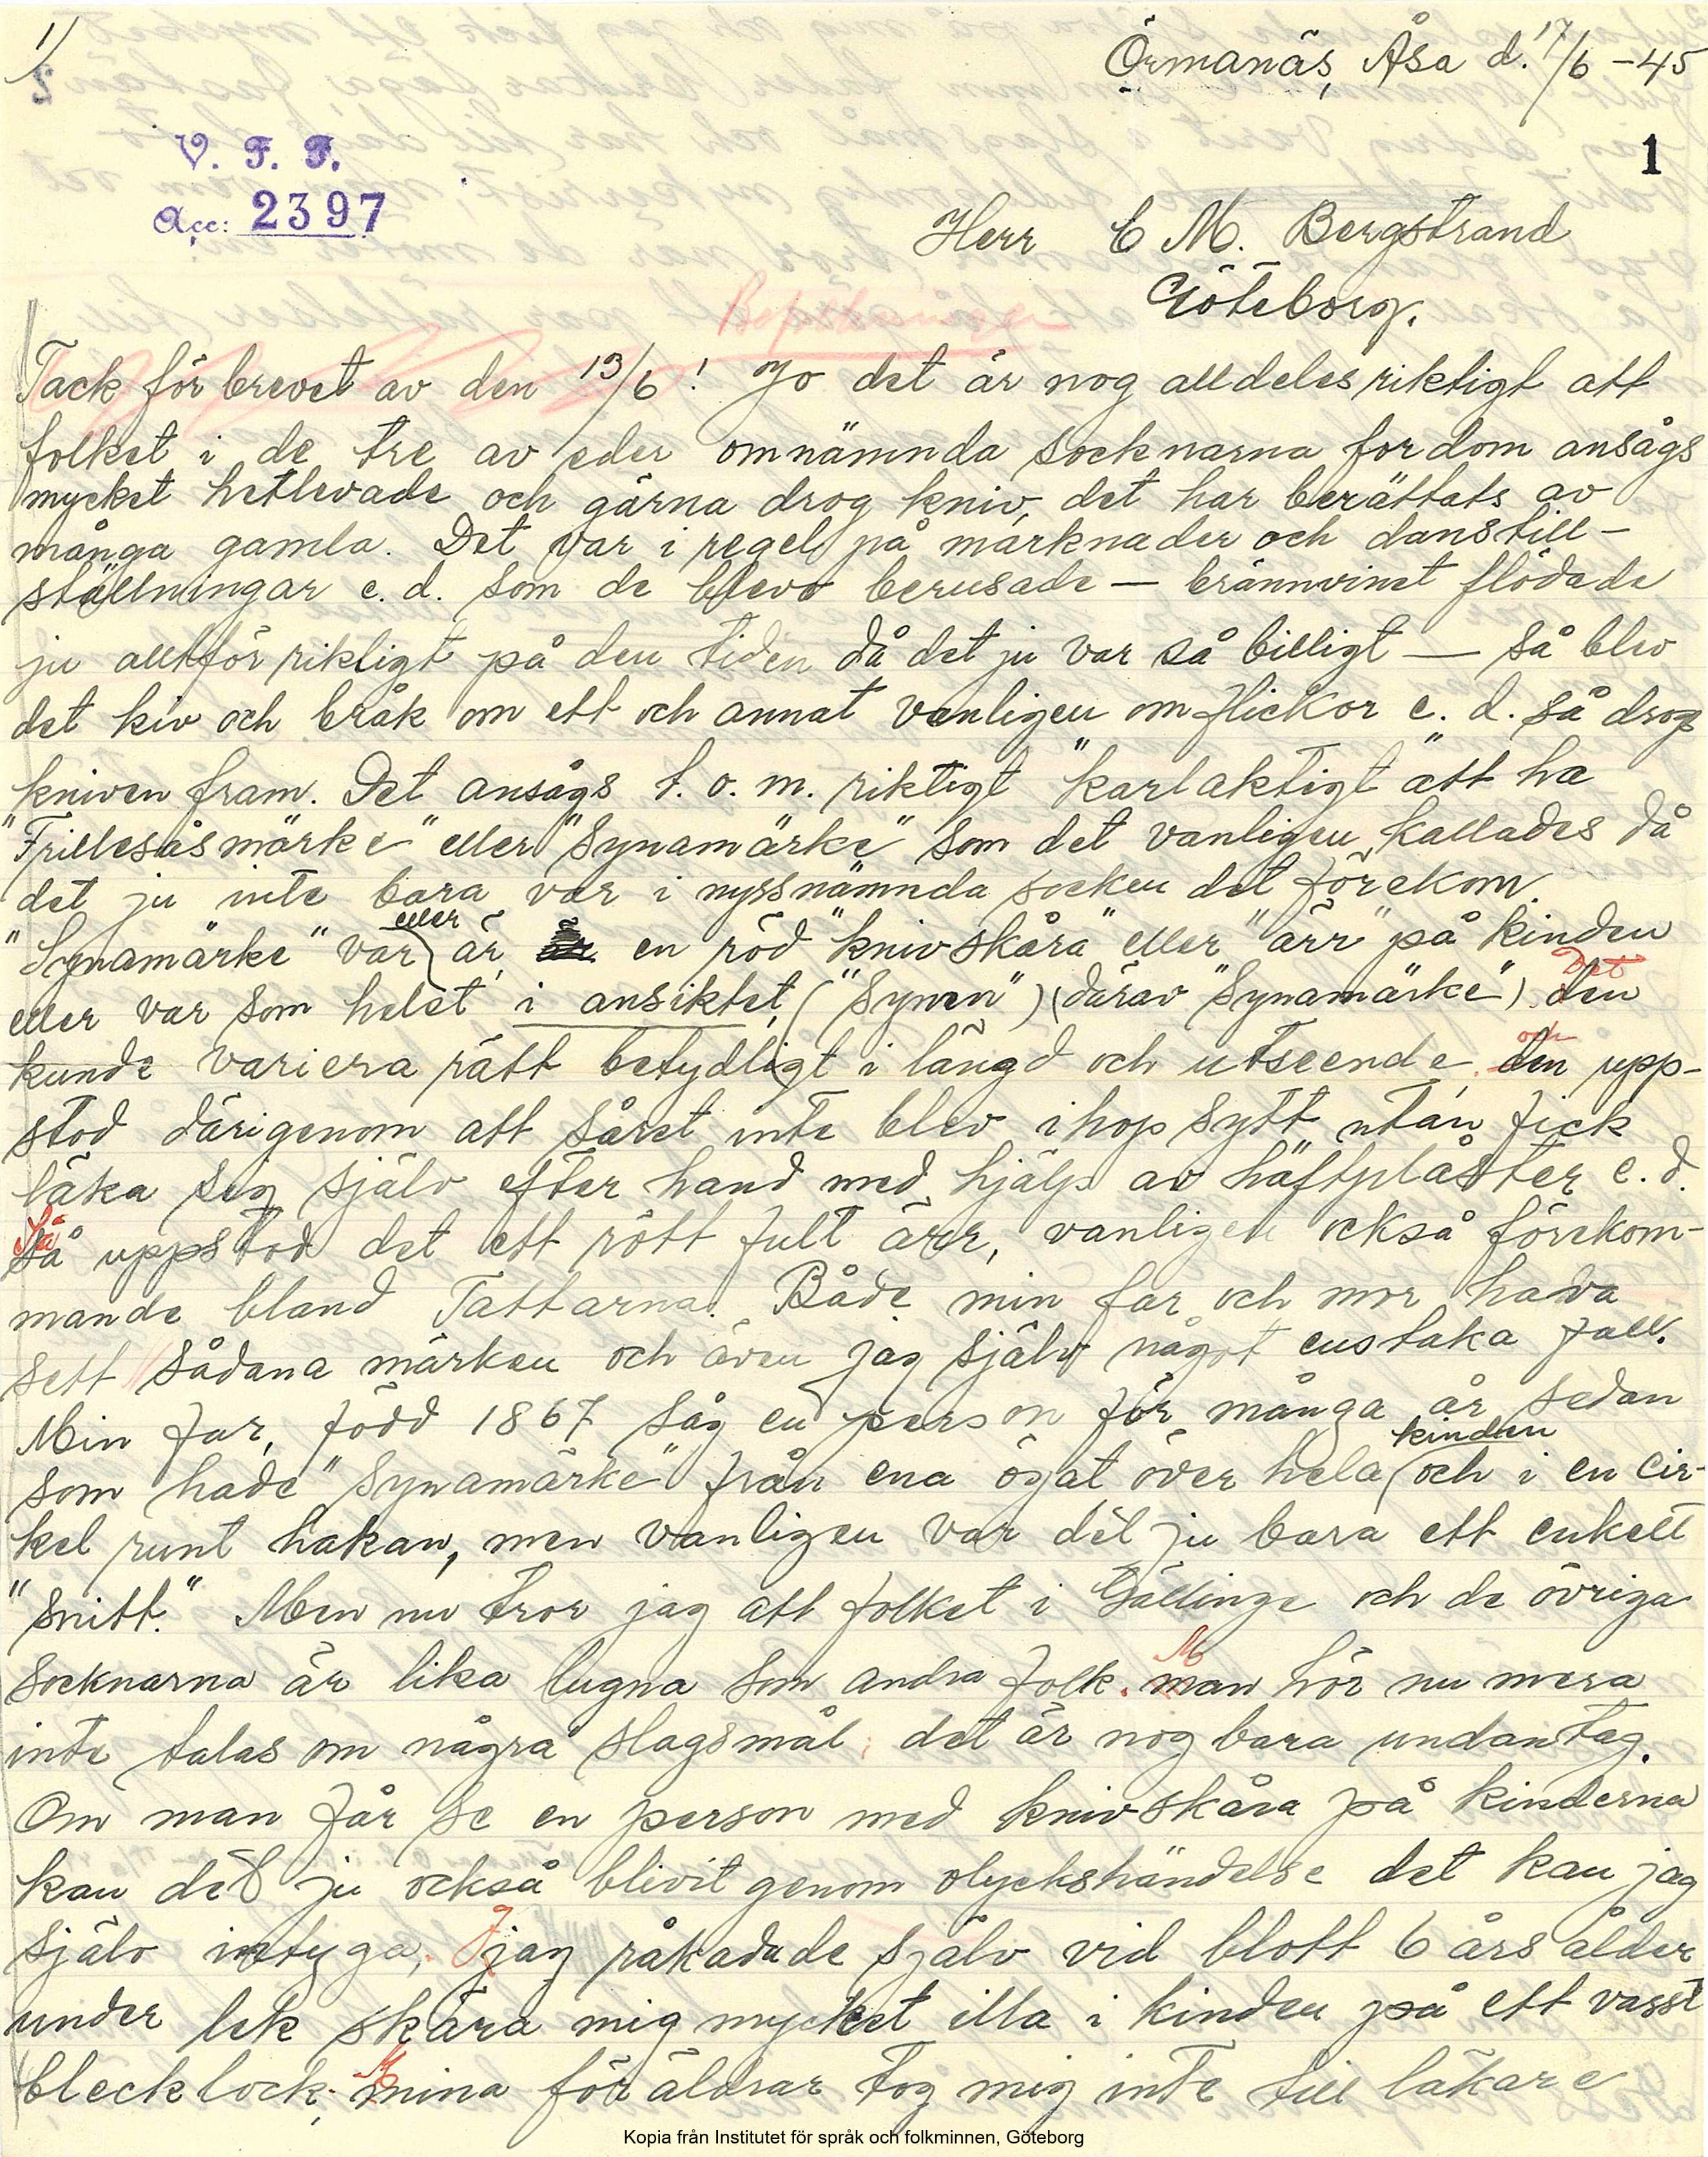 1/
Örmanäs, Åsa d. 17/6 -45
V. F. F.
Acc: 2397
1
Herr C M. Bergstrand
Göteborg.
Tack för brevet av den 13/6! Jo det är nog alldeles riktigt att
folket i de tre av eder omnämnda socknarna fordom ansågs
mycket hetlevade och gärna drog kniv, det har berättats av
många gamla. Det var i regel på marknader och danstill-
ställningar e. d. som de blevo berusade — brännvinet flödade
ju alltför rikligt på den tiden då det ju var så billigt — så blev
det kiv och bråk om ett och annat vanligen om flickor e. d. så drogs
kniven fram. Det ansågs t. o. m. riktigt "karlaktigt" att ha
"Frillesåsmärke" eller "Synamärke" som det vanligen kallades då
det ju inte bara var i nyssnämnda socken det förekom.
"Synamärke" var eller är en röd "knivskåra" eller "ärr" på kinden
eller var som helst i ansiktet, ("Synen") (därav "Synamärke") Det den
kunde variera rätt betydligt i längd och utseende, och den upp-
stod därigenom att såret inte blev ihopsytt utan fick
läka sig själv efter hand med hjälp av häftplåster e. d.
Så uppstod det ett rött fult ärr, vanligen också förekom-
mande bland Tattarna. Både min far och mor hava
sett sådana märken och även jag själv något enstaka fall.
Min far, född 1867 såg en person för många år sedan
som hade "synamärke" från ena ögat över hela kinden och i en cir-
kel runt hakan, men vanligen var det ju bara ett enkelt
"snitt." Men nu tror jag att folket i Gällinge och de övriga
socknarna är lika lugna som andra folk. Man hör nu mera
inte talas om några slagsmål; det är nog bara undantag.
Om man får se en person med knivskåra på kinderna
kan det ju också blivit genom olyckshändelse det kan jag
själv intyga, Jag råkadade själv vid blott 6 års ålder
under lek skära mig mycket illa i kinden på ett vasst
blecklock. Mina föräldrar tog mig inte till läkare
Kopia från Institutet för språk och folkminnen, Göteborg